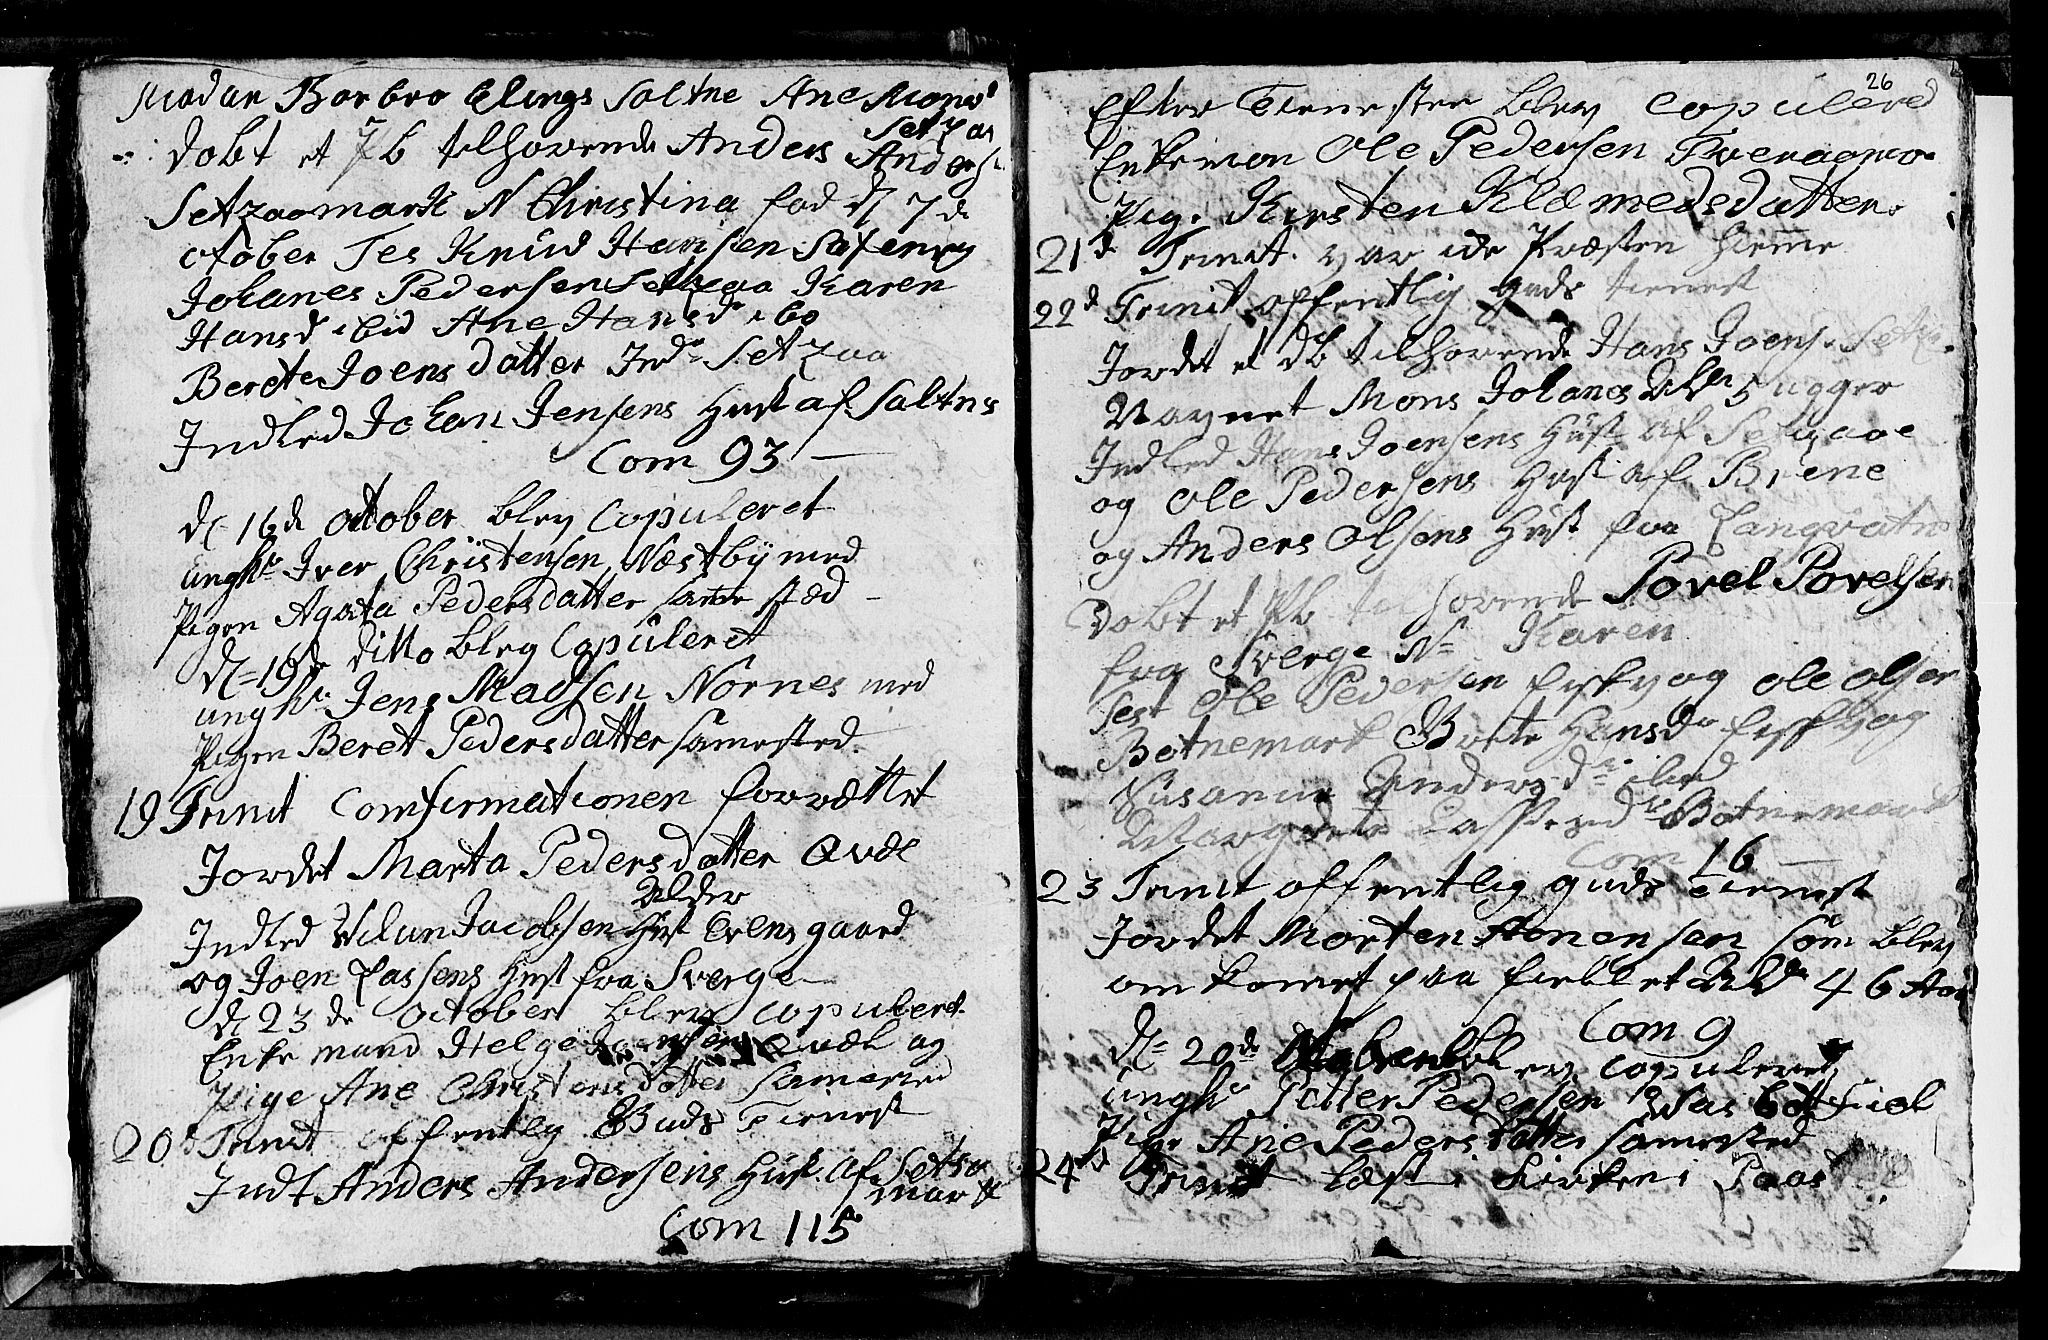 Madar Barbro Elings Saltne Ane Mons
Setzaa
Dobt et Pb tilhørende Anders Anders
Setzaamark N Christina fød d 7 de
october Tes Knud Hansen Saxenvig
Johanes Pedersen Setzaa Karen
Hansd ibid Ane Hansd ibo
Beret Joens datter Ind Setzaa
Indled Johan Jensens Hust af Saltnes
Com 93 —
d 16 de october blev Copuleret
ungk Iver Christensen Næstby med
Pigen Agata Pedersdatter samestæd
d 19 de ditto blev Copuleret
ungk Jens Madsen Nornes med
Pigen Beret Pedersdatter samested
19 Trinit Comfirmationen forrættet
Jordet Marta Pedersdatter Qvæl
Alder
Indled Jacobsen Hust Evensgaard
og Joen Lassens Hust fra Sverge
d 23 de october blev copuleret
Enke mand Helge Qvæl og
Pige Ane Christensdatter samested
20 d Trinit offentlig Guds Tienest
Indl Anders Andersens Hust af Setzaa
mark
Com 115
26
Efter Tienesten blev Copulered
Enkeman Ole Pedersen Tveraamo
Pige Kirsten Klemedsdatter
21 d Trinit var icke Præsten hieme
22 d Trinit offentlig Guds tienest
Jordet et db tilhørende Hans Joens Setz
Navnet Mons Johanes Ald 5 ugger
Indled Hans Joensens Hust af Setzaae
og Ole Pedersens Hust af Brene
og Anders Olsens Hust fra Langvatn
Dobt et Pb tilhørende Povel Povelsen
fra Sverge N Karen
Test Ole Pedersen fiskvog Ole Olsen
Botnemark Brete Hansd fiskvog
Susanna Andersd ibid
Margrete d Botnemark
Com 16 —
23 Trinit offentlig guds Tienest
Jordet Morten Amonsen søm blev
omkomet paa fieldet Ald 46 Aar
Com 9
d 20 de blev copuleret
ungk Petter Pedersen
Pige Ane Pedersdatter samested
24 d Trinit læst i Kirken i